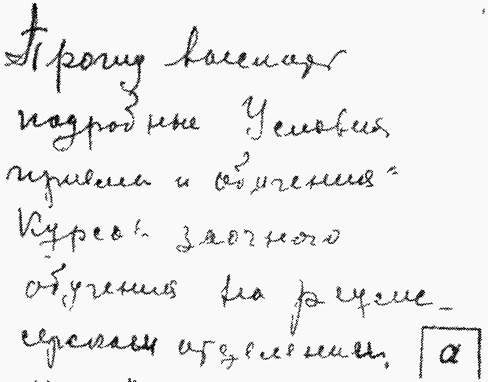 Прошу выслать
подробные Условия
приема и обучения
Курсов заочного
обучения на режис-
серском отделении.
а